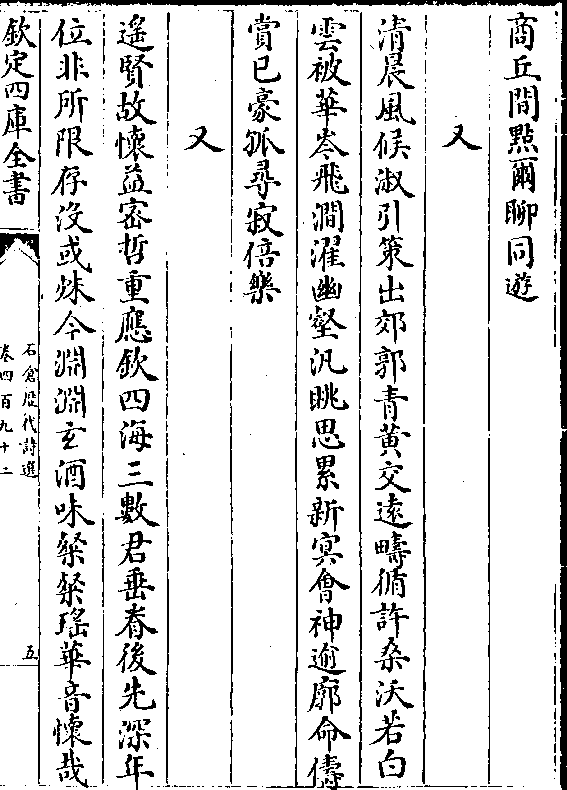 商丘間㸃爾聊同遊
又
清晨風候淑引策出郊郭青黄交遠疇脩許桑沃若白
雲被華岑飛澗濯幽壑汎眺思累新冥會神逾廓命儔
賞已豪孤尋寂倍樂
又
遥賢故懐益宻哲重應欽四海三數君垂眷後先深年
位非所限存沒或殊今淵淵玄酒味粲粲瑶華音懐哉
欽定四庫全書
石倉歴代詩選
卷四百九十二
五